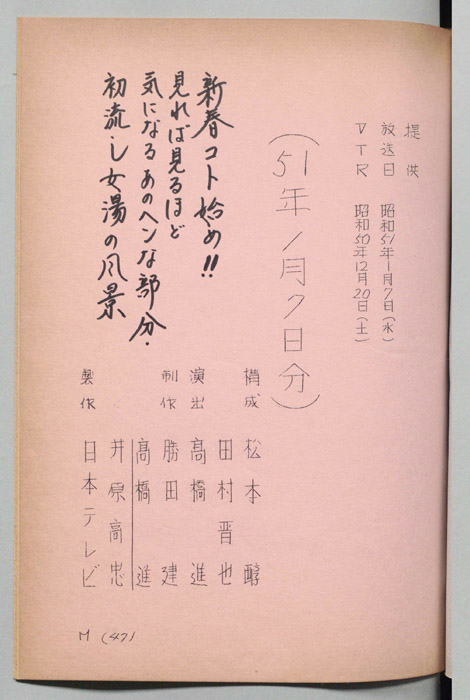 提供
放送日 昭和51年1月7日(水)
VTR 昭和50年12月20日(土)
(51年1月7日分)
新春コト始め!!
見れば見るほど
気になるあのヘンな部分.
初流し女湯の風景
構成 松本 酵
田村晋也
演出 高橋 進
制作 勝田 建
高橋 進
井原高忠
製作 日本テレビ
M (47)